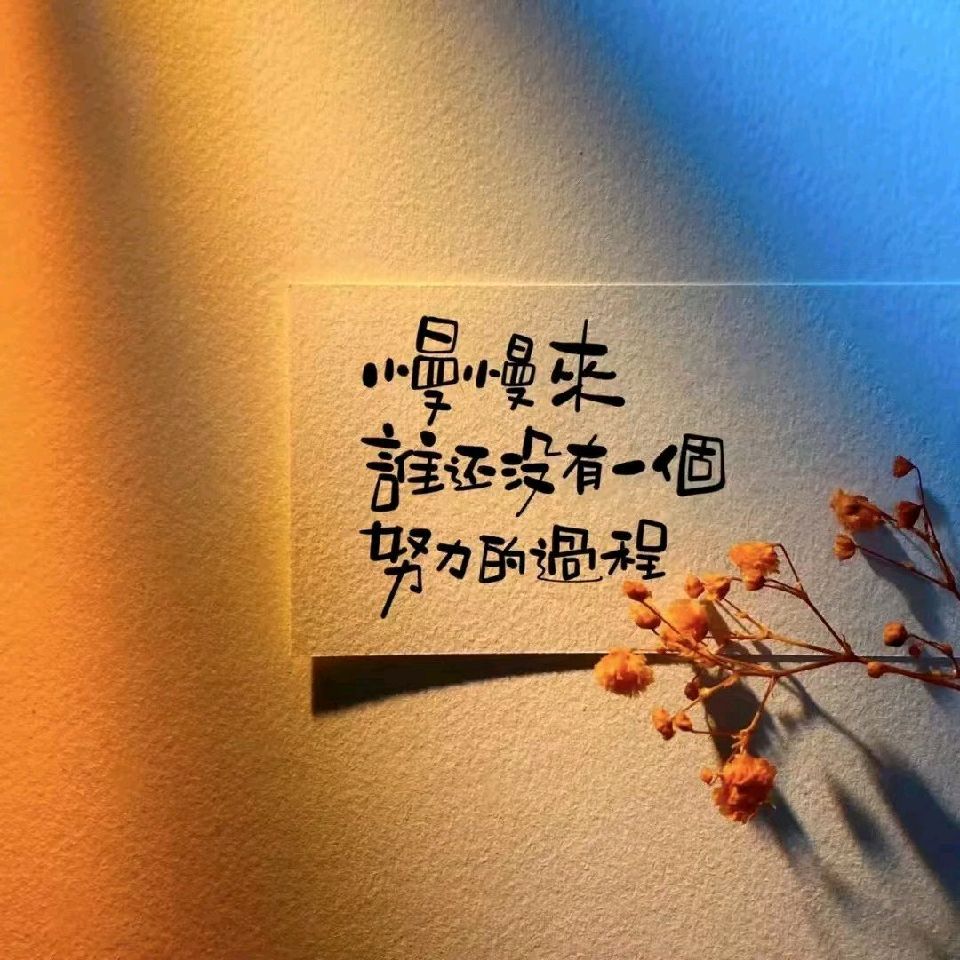 慢慢來
誰还没有一個
努力的過程